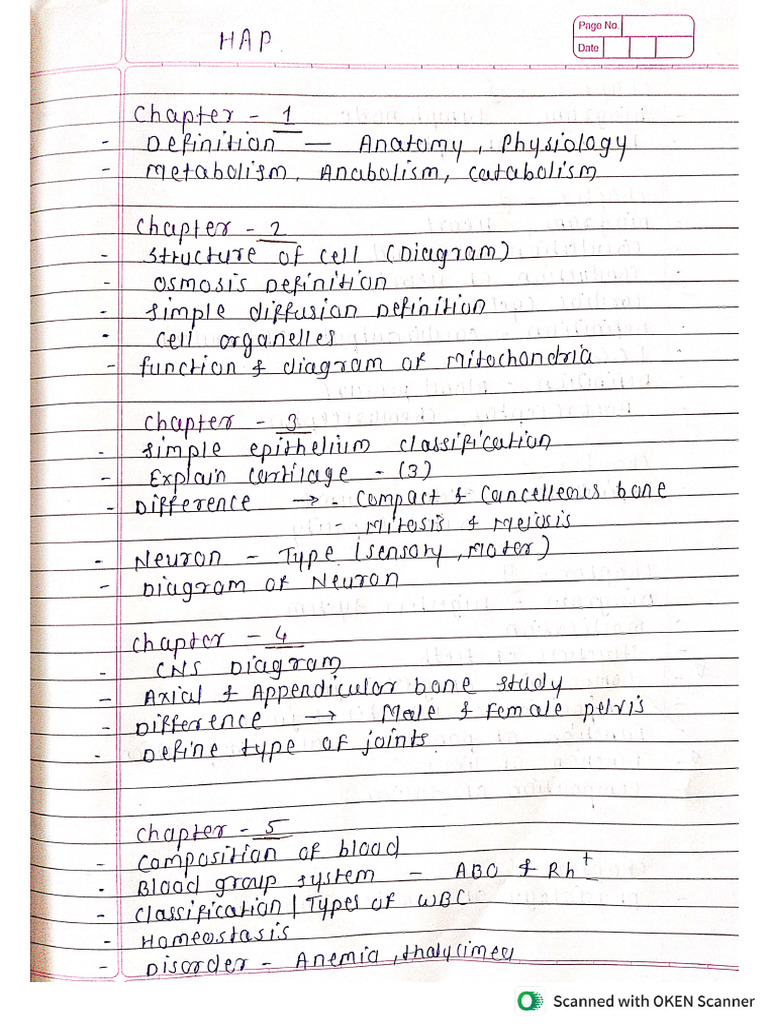 HAP.
Page No.
Date
Chapter - 1
- Definition — Anatomy, Physiology
- Metabolism, Anabolism, Catabolism
Chapter - 2
- Structure of cell (Diagram)
- Osmosis Definition
- Simple diffusion Definition
- Cell organelles
- function & diagram of Mitochondria
Chapter - 3
- Simple epithelium classification
- Explain cartilage - (3)
- Difference → - Compact & Cancelleous bone
- Mitosis & Meiosis
- Neuron - Type (sensory, Motor)
- Diagram of Neuron
Chapter - 4
- CNS Diagram
- Axial & Appendicular bone study
- Difference → Male & female pelvis
- Define type of joints.
Chapter - 5
- Composition of blood
- Blood group system - ABO & Rh+
- Classification | Types of WBC
- Homeostasis
- Disorder - Anemia,
Scanned with OKEN Scanner